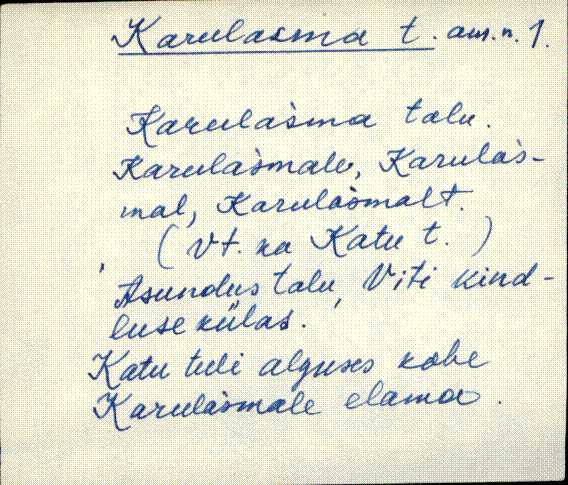 Karulasma t. am. n. 1.
Karulasma talu.
Karulasmale, Karulas-
mal, Karulasmalt.
(Vt. ka Katu t.)
Asundus talu, Viti kind-
luse külas.
Katu tuli alguses kohe
Karulasmale elama.